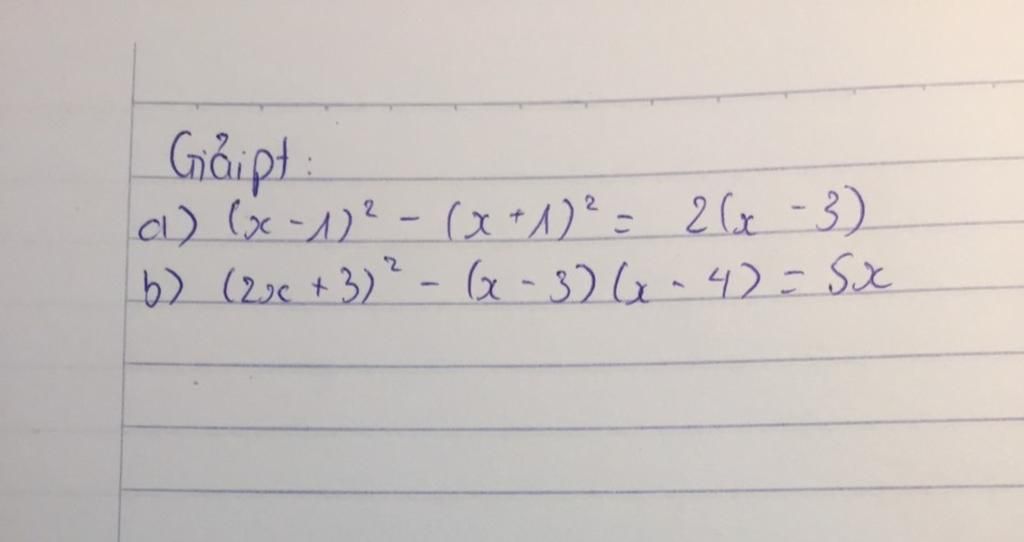 Giải pt :
a) (x - 1)² - (x + 1)² = 2(x - 3)
b) (2x + 3)² - (x - 3)(x - 4) = 5x